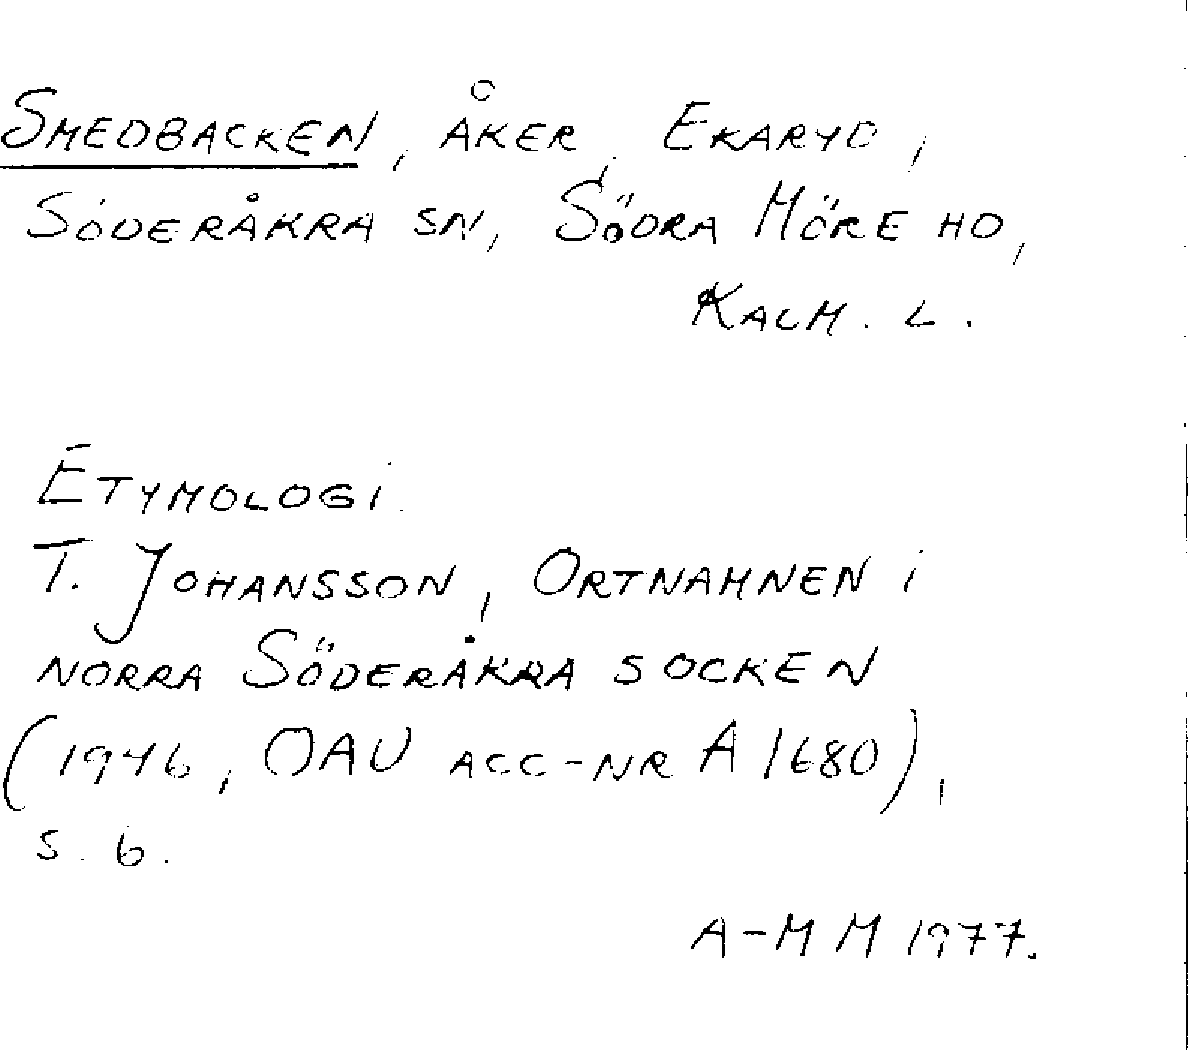 SMEDBACKEN, ÅKER, EKARYD,
SÖDERÅKRA SN, SÖDRA MÖRE HD,
KALM. L.
ETYMOLOGI.
T. JOHANSSON, ORTNAMNEN I
NORRA SÖDERÅKRA SOCKEN
(1946, OAU ACC-NR A 1680),
S. 6.
A-M M 1977.